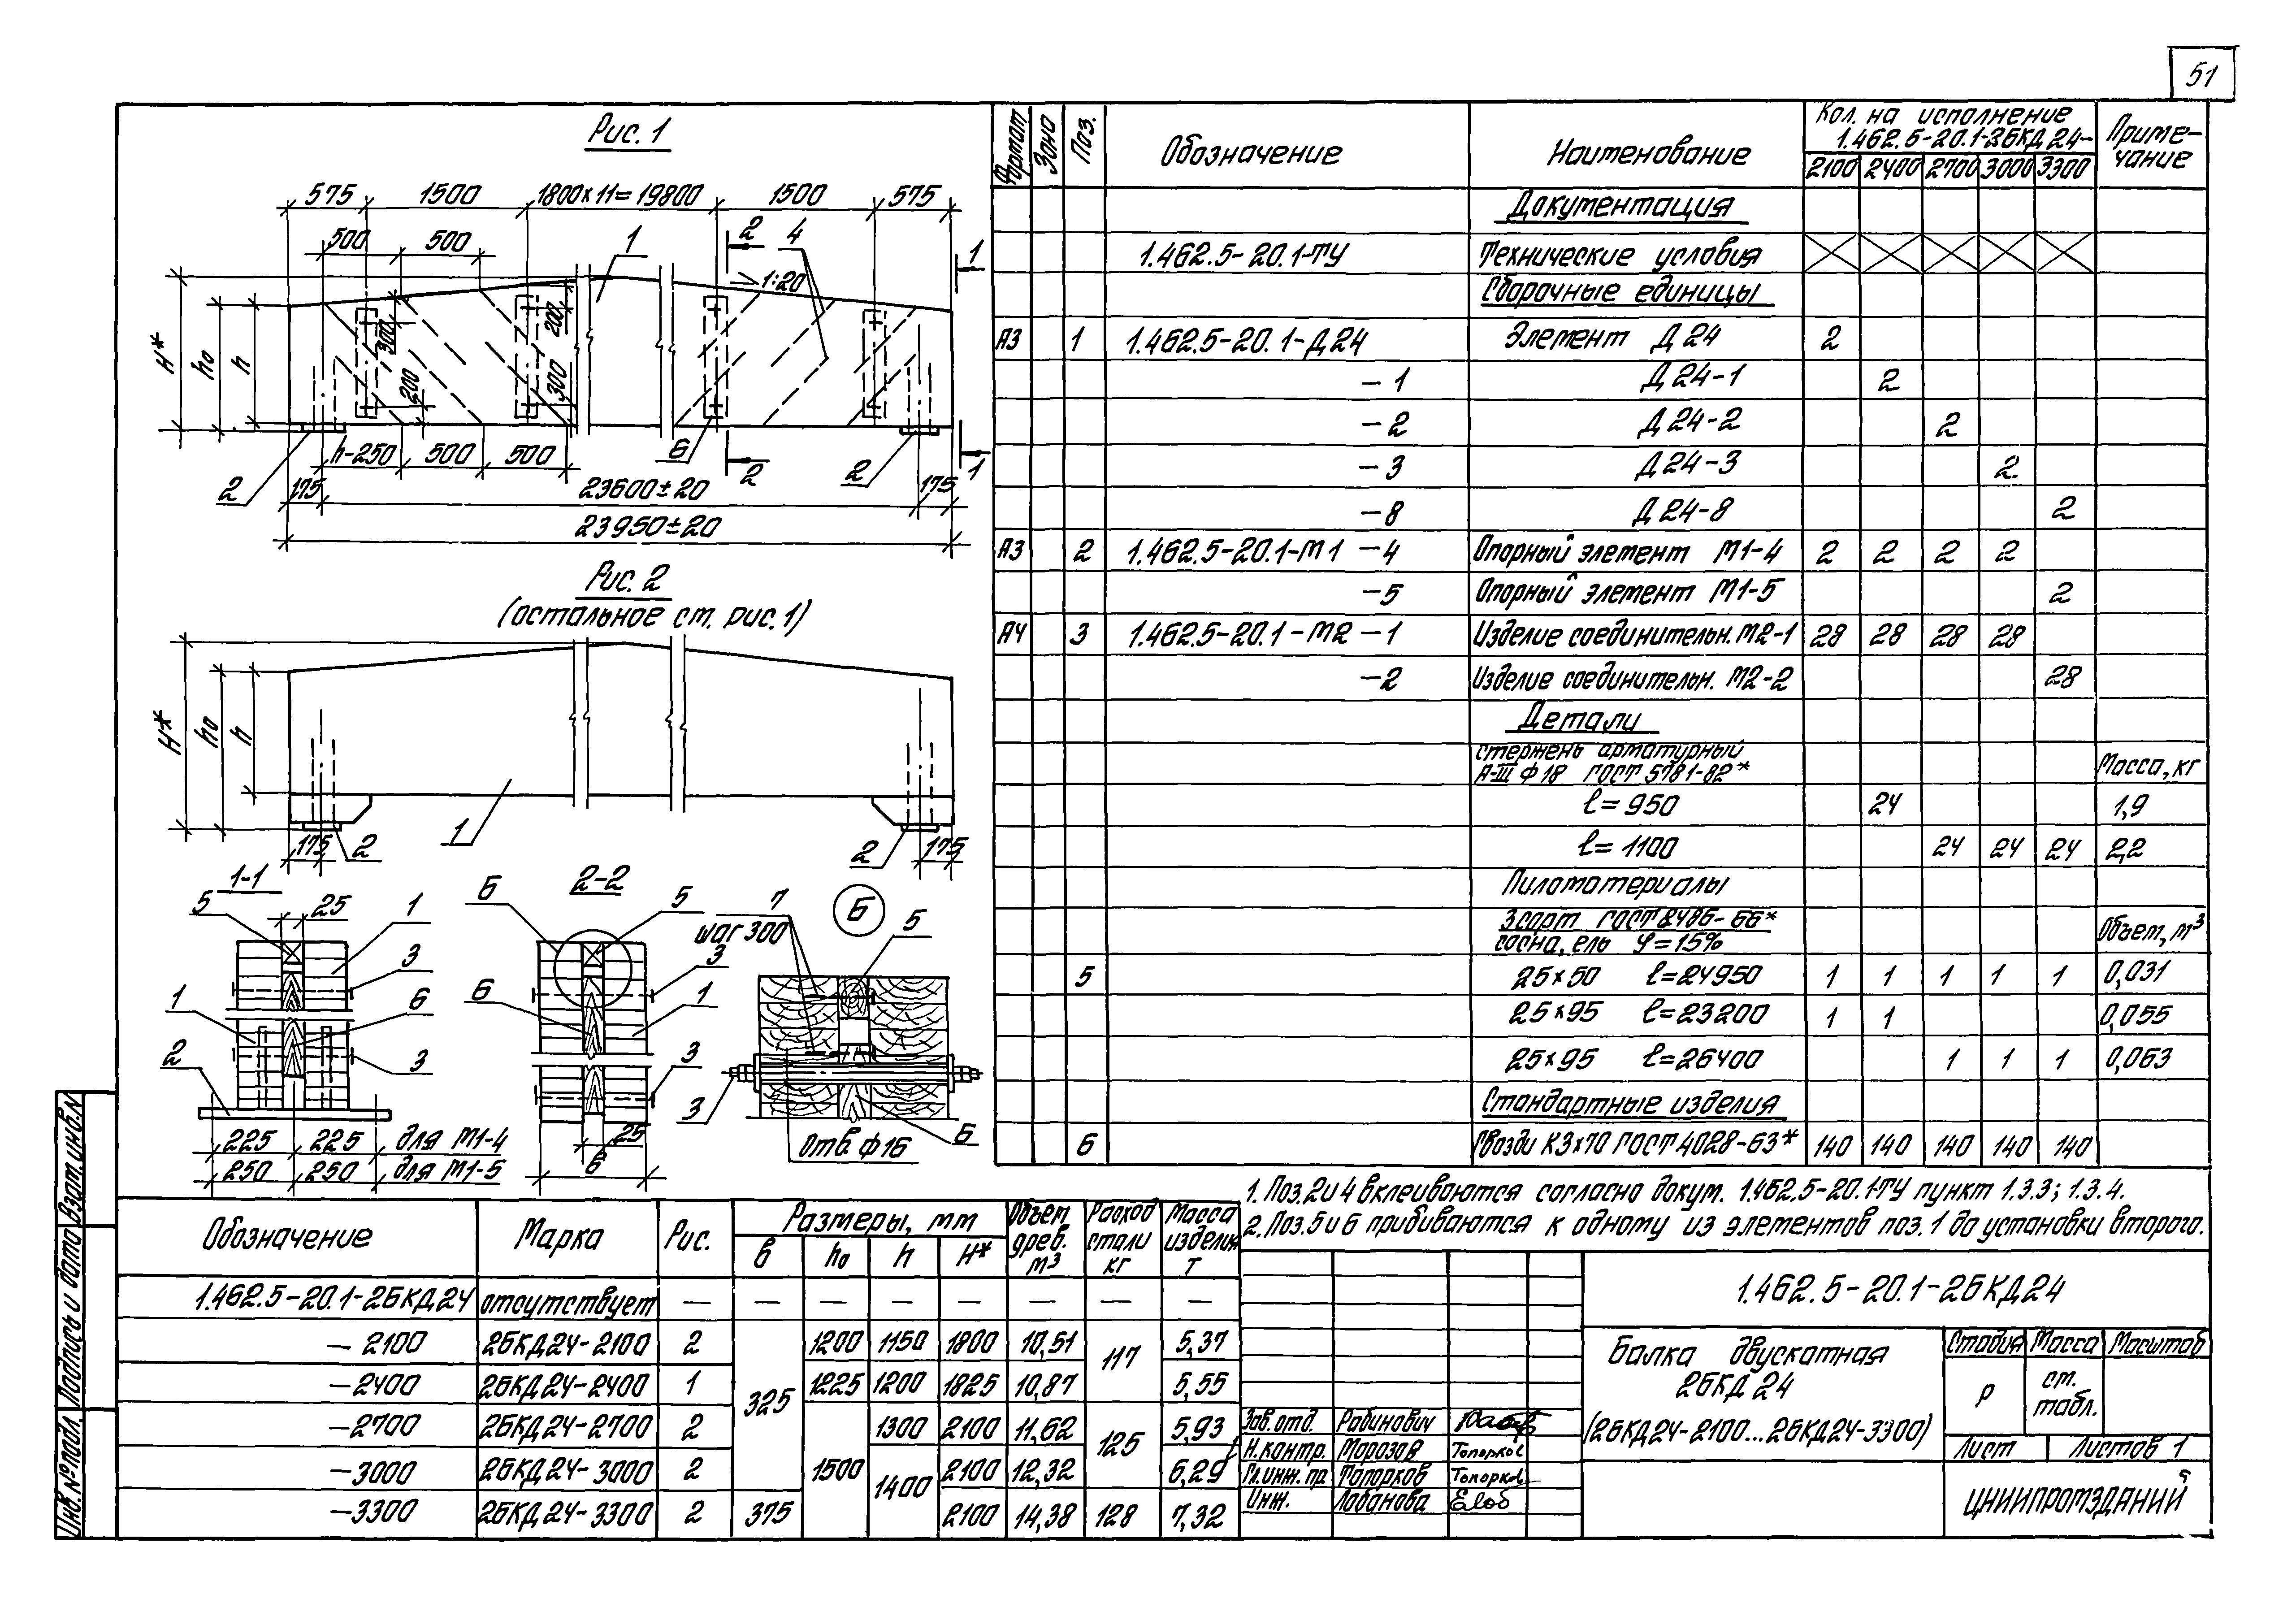 51
Рис. 1
575 1500 1800×11=19800 1500 575
500 500 1 2 4 1
1:20
H* h₀ h 300 200 200 300
h-250 500 500 6 2 2 1
2 175 23600±20 175
23950±20
Рис. 2
(остальное ст. рис. 1)
H* h₀ h
175 2 1 2 175
1-1 2-2 Б
5 25 1 Б 5 7 5
шаг 300
3 3
1 6 6 1
2 3 3 3 6
225 225 для М1-4 25 Отв. ф16
250 250 для М1-5 в
Формат Зона Поз. Обозначение Наименование Кол. на исполнение 1.462.5-20.1-2БКД24- Приме-чание
2100 2400 2700 3000 3300
Документация
1.462.5-20.1-ТУ Технические условия
Сборочные единицы
А3 1 1.462.5-20.1-Д24 Элемент Д24 2
-1 Д24-1 2
-2 Д24-2 2
-3 Д24-3 2
-8 Д24-8 2
А3 2 1.462.5-20.1-М1 -4 Опорный элемент М1-4 2 2 2 2
-5 Опорный элемент М1-5 2
А4 3 1.462.5-20.1-М2 -1 Изделие соединительн. М2-1 28 28 28 28
-2 Изделие соединительн. М2-2 28
Детали
стержень арматурный
А-III Ф18 ГОСТ 5781-82* Масса, кг
ℓ=950 24 1,9
ℓ=1100 24 24 24 2,2
Пиломатериалы
3сорт ГОСТ 8486-66*
сосна, ель φ=15% Объем, м³
5 25×50 ℓ=24950 1 1 1 1 1 0,031
25×95 ℓ=23200 1 1 0,055
25×95 ℓ=26400 1 1 1 0,063
Стандартные изделия
6 Гвозди К3×70 ГОСТ 4028-63* 140 140 140 140 140
1. Поз. 2 и 4 вклеиваются согласно докум. 1.462.5-20.1-ТУ пункт 1.3.3; 1.3.4.
2. Поз. 5 и 6 прибиваются к одному из элементов поз. 1 до установки второго.
Обозначение Марка Рис. Размеры, мм Объем древ. м³ Расход стали кг Масса изделия т
в h₀ h H*
1.462.5-20.1-2БКД24 отсутствует — — — — — — — —
-2100 2БКД24-2100 2 325 1200 1150 1800 10,51 117 5,37
-2400 2БКД24-2400 1 1225 1200 1825 10,87 5,55
-2700 2БКД24-2700 2 1500 1300 2100 11,62 125 5,93
-3000 2БКД24-3000 2 1400 2100 12,32 6,29
-3300 2БКД24-3300 2 375 2100 14,38 128 7,32
1.462.5-20.1-2БКД24
Балка двускатная
2БКД24
(2БКД24-2100...2БКД24-3300)
Стадия Масса Масштаб
Р ст. табл.
Лист Листов 1
ЦНИИПРОМЗДАНИЙ
Зав. отд. Рабинович
Н. контр. Морозов Топорков
Гл. инж. пр Топорков Топорков
Инж. Лобанова
Инв. № подл. Подпись и дата Взам. инв. N